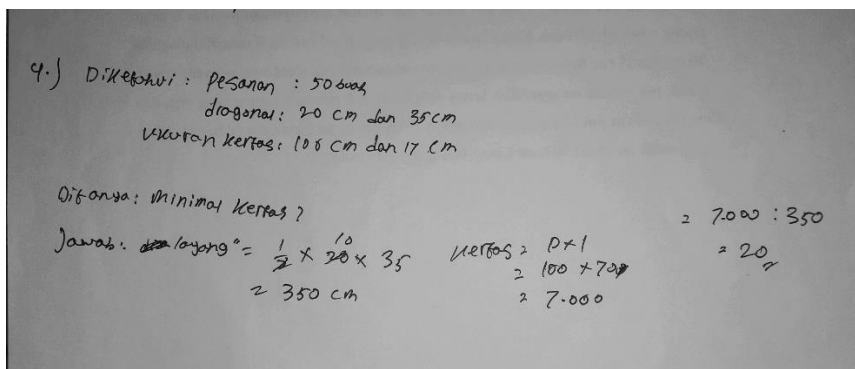 4.) Diketahui : Pesanan : 50 buah
diagonal : 20 cm dan 35 cm
Ukuran kertas : 100 cm dan 17 cm
Ditanya : Minimal kertas ?
Jawab : layang" = 1/2 x 20 10 x 35
= 350 cm
kertas = p x l
= 100 x 70
= 7.000
= 7.000 : 350
= 20